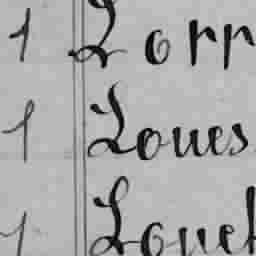 1 Lorr
1 Loues
1 Louet